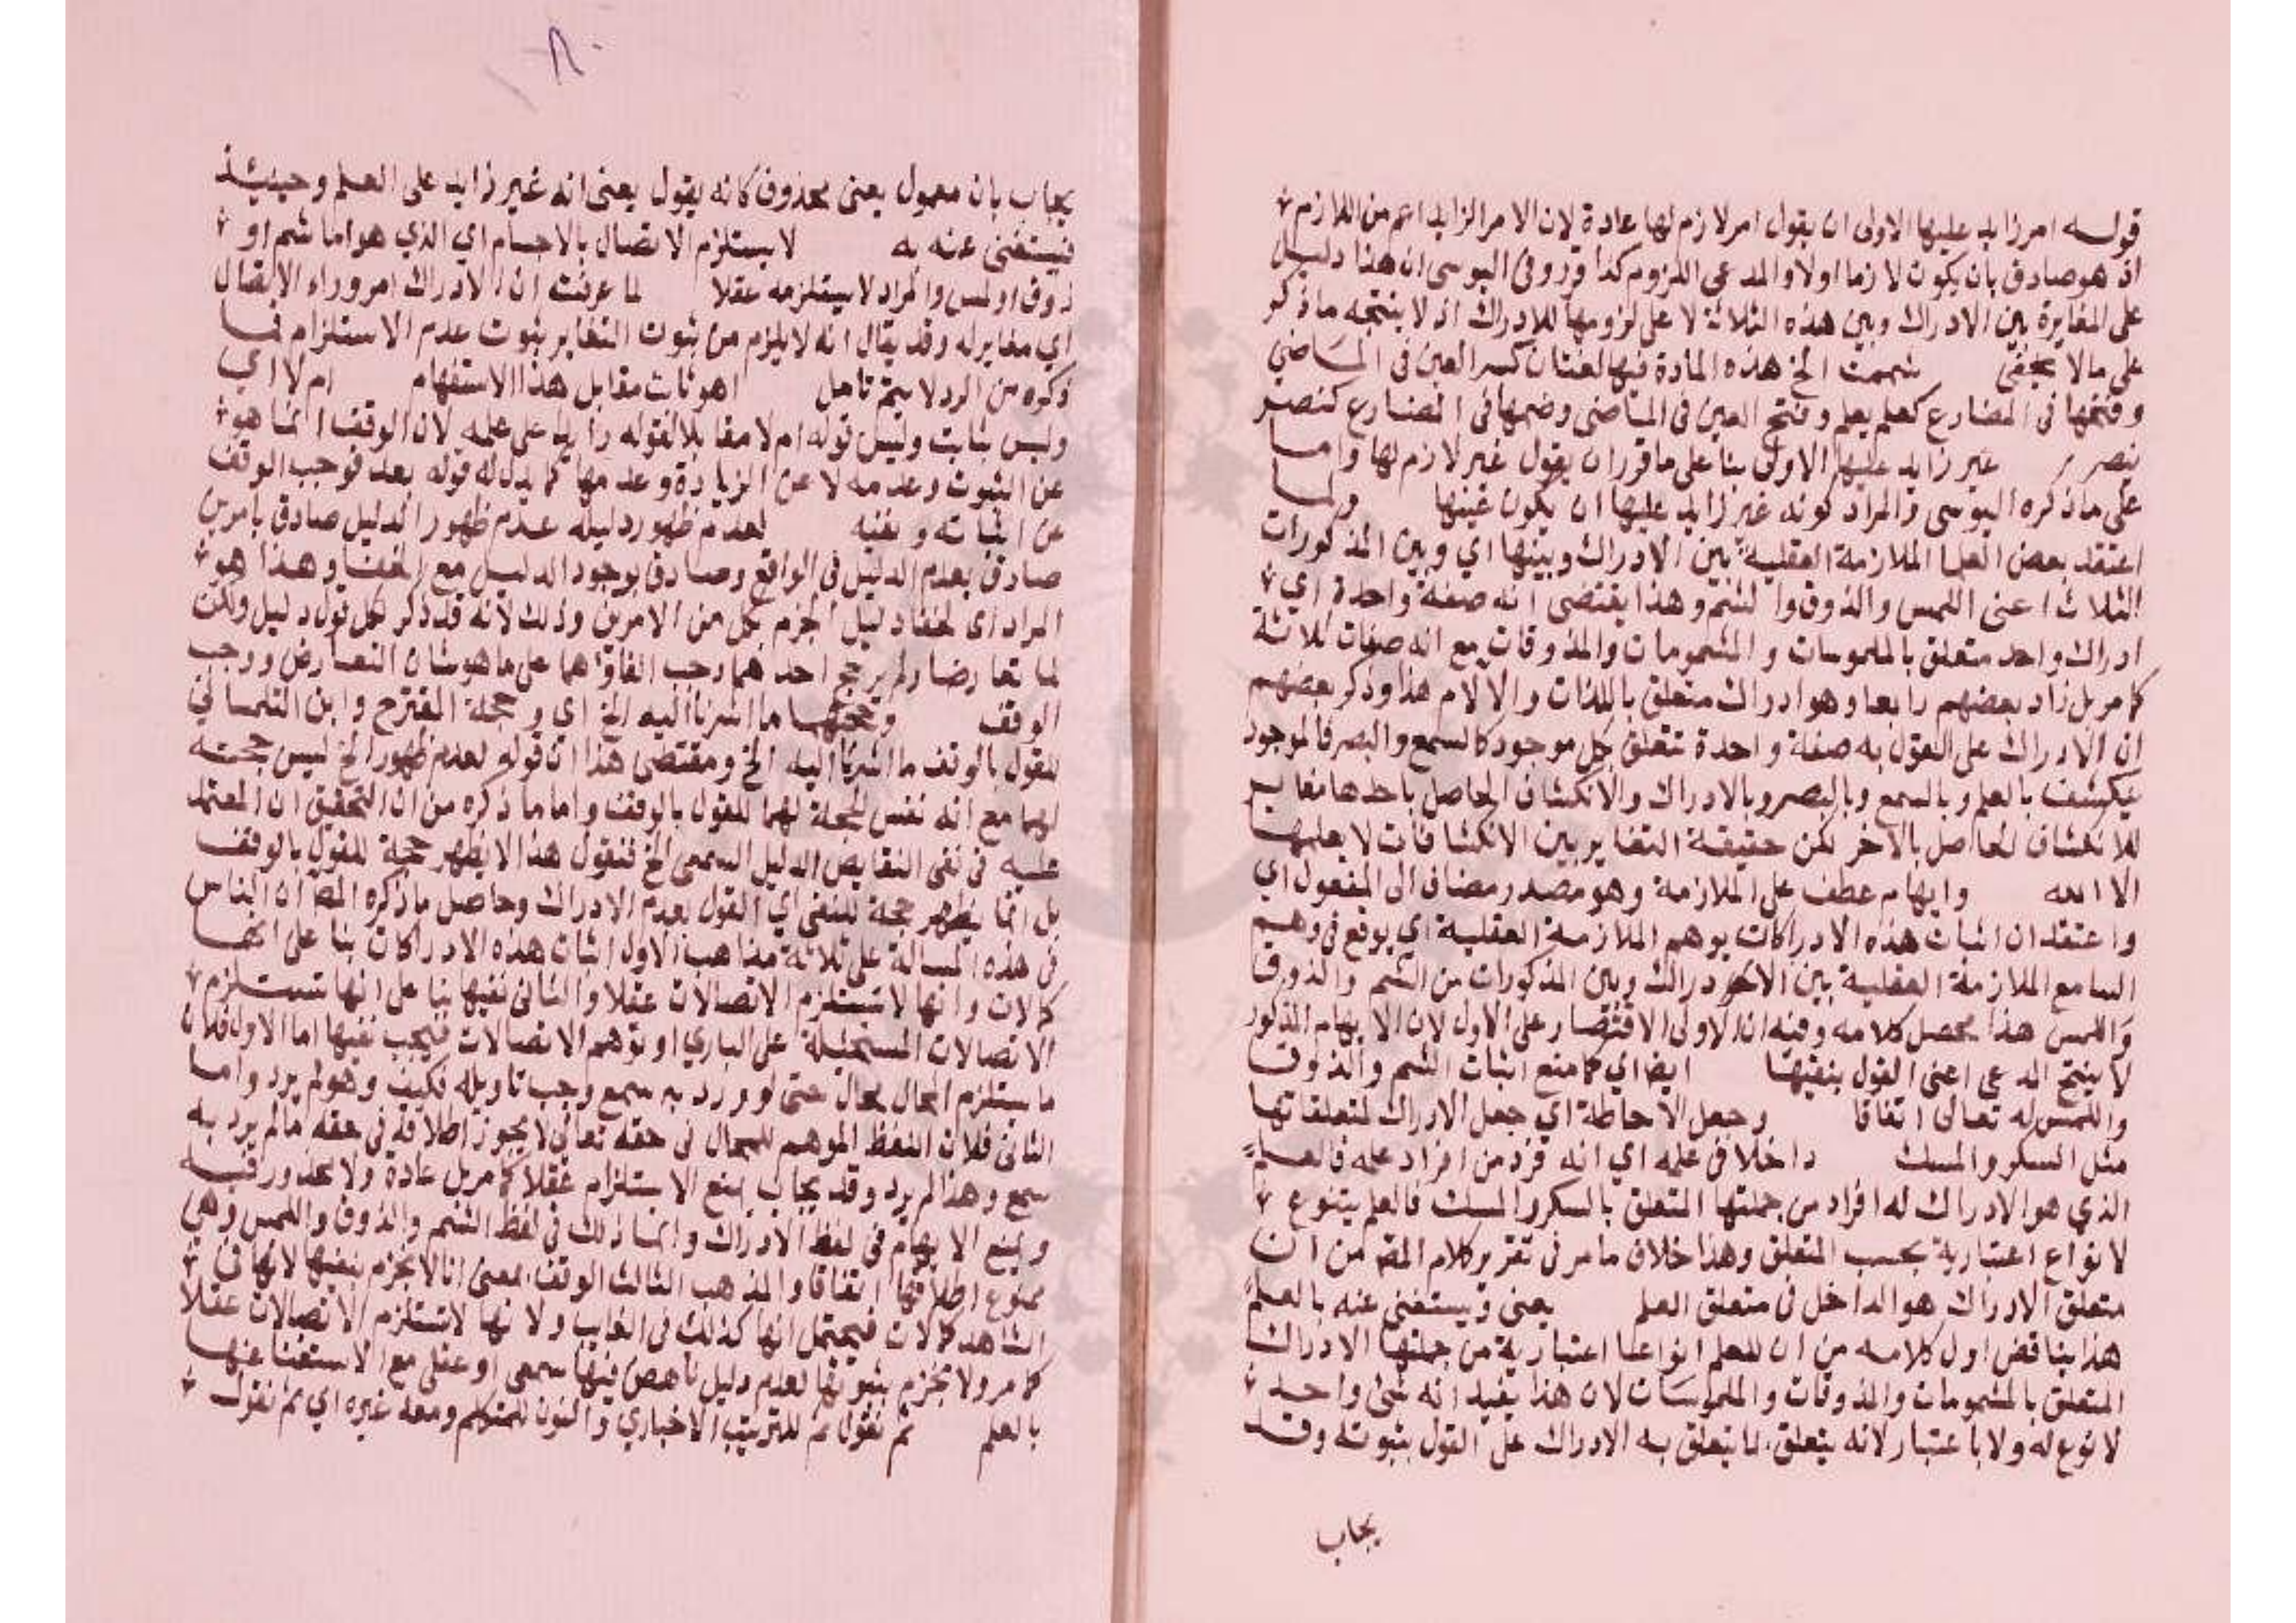 قوله امر زايد عليها الاولى ان يقول امر لازم لها عادة لان الامر الزايد اعم من اللازم
اذ هو صادق بان يكون لازما اولا والمدعى اللزوم كذا قرر وفى اليوسى ان هذا دليل
على المغايرة بين الادراك وبين هذه الثلاثة لا على لزومها للادراك اذ لا ينتجه ما ذكر
على مالا يخفى شممت الخ هذه المادة فيها لغتان كسر العين فى الماضى
وفتحها فى المضارع كعلم يعلم وفتح العين فى الماضى وضمها فى المضارع كنصر
ينصر غير زايد عليها الاولى بنا على ما قرر ان يقول غير لازم لها واما
على ما ذكره اليوسى فالمراد كونه غير زايد عليها ان يكون عينها ولما
اعتقد بعض العلما الملازمة العقلية بين الادراك وبينها اي وبين المذكورات
الثلاث اعنى اللمس والذوق والشم وهذا يقتضى انه صفة واحدة اي
ادراك واحد متعلق بالملموسات والمشمومات والمذوقات مع انه صفات ثلاثة
كما مر بل زاد بعضهم رابعا وهو ادراك متعلق باللذات والالام هذا وذكر بعضهم
ان الادراك على القول به صفة واحدة تتعلق بكل موجود كالسمع والبصر فالموجود
ينكشف بالعلم وبالسمع وبالبصر وبالادراك والانكشاف الحاصل باحدها مغاير
للانكشاف الحاصل بالاخر لكن حقيقة التغاير بين الانكشافات لا يعلمها
الا الله وايهام عطف على الملازمة وهو مصدر مضاف الى المفعول اي
واعتقد ان اثبات هذه الادراكات يوهم الملازمة العقلية اي يوقع فى وهم
السامع الملازمة العقلية بين الادراك وبين المذكورات من الشم والذوق
واللمس هذا محصل كلامه وفيه ان الاولى الاقتصار على الاول لان الايهام المذكور
لا ينتج المدعى اعنى القول بنفيها ايضا اي كما منع اثبات الشم والذوق
واللمس له تعالى اتفاقا وجعل الاحاطة اي جعل الادراك لمتعلقاتها
مثل السكر والمسك داخلا فى علمه اي انه فرد من افراد علمه فالعلم
الذي هو الادراك له افراد من جملتها المتعلق بالسكر والمسك فالعلم يتنوع
لانواع اعتبارية بحسب المتعلق وهذا خلاف ما مر فى تقرير كلام المص من ان
متعلق الادراك هو الداخل فى متعلق العلم يعنى ويستغنى عنه بالعلم
هذا يناقض اول كلامه من ان للعلم انواعا اعتبارية من جملتها الادراك
المتعلق بالمشمومات والمذوقات والملموسات لان هذا يفيد انه شئ واحد
لا نوع له ولا باعتبار لانه يتعلق بما يتعلق به الادراك على القول بثبوته وقد
يجاب
يجاب بان معمول يعنى محذوف كانه يقول يعنى انه غير زايد على العلم وحينئذ
فيستغنى عنه به لا يستلزم الاتصال بالاجسام اي الذي هو اما شم او
ذوق او لمس والمراد لا يستلزمه عقلا لما عرفت ان الادراك امر وراء الاتصال
اي مغاير له وقد يقال انه لا يلزم من ثبوت التغاير ثبوت عدم الاستلزام فما
ذكره من الرد لا يتم تامل اهو ثابت مقابل هذا الاستفهام ام لا اي
وليس بثابت وليس قوله ام لا مقابلا لقوله زايد على علمه لان الوقف انما هو
عن الثبوت وعدمه لا عن الزيادة وعدمها كما يدل له قوله بعد فوجب الوقف
عن اثباته ونفيه لعدم ظهور دليله عدم ظهور الدليل صادق بامرين
صادق بعدم الدليل فى الواقع وصادق بوجود الدليل مع الخفا وهذا هو
المراد اى لخفا دليل الجزم بكل من الامرين وذلك لانه قد ذكر لكل قول دليل ولكن
لما تعارضا ولم يرجح احدهما وجب الغاؤهما على ما هو شان التعارض ووجب
الوقف وحجتهما ما اشرنا اليه الخ اي وحجة المقترح وابن التلمسانى
للقول بالوقف ما اشرنا اليه الخ ومقتضى هذا ان قوله لعدم ظهور الخ ليس حجة
لهما مع انه نفس الحجة لهما للقول بالوقف واما ما ذكره من ان التحقيق ان المعتمد
عليه فى نفى النقايص الدليل السمعى الخ فنقول هذا لا يظهر حجة للقول بالوقف
بل انما يظهر حجة للنفى اي القول بعدم الادراك وحاصل ما ذكره المص ان الناس
فى هذه المسالة على ثلاثة مذاهب الاول اثبات هذه الادراكات بنا على انها
كمالات وانها لا تستلزم الاتصالات عقلا والثانى نفيها بنا على انها تستلزم
الاتصالات المستحيلة على الباري او توهم الاتصالات فيجب نفيها اما الاول فلان
ما يستلزم المحال محال حتى لو ورد به سمع وجب تاويله فكيف وهو لم يرد واما
الثانى فلان اللفظ الموهم للمحال فى حقه تعالى لا يجوز اطلاقه فى حقه ما لم يرد به
سمع وهذا لم يرد وقد يجاب بمنع الاستلزام عقلا كما مر بل عادة ولا محذور فيه
وبمنع الايهام فى لفظ الادراك وانما ذلك فى لفظ الشم والذوق واللمس وهى
ممنوع اطلاقها اتفاقا والمذهب الثالث الوقف بمعنى انا لا نجزم بنفيها لانها فى
الشاهد كمالات فيحتمل انها كذلك فى الغايب ولانها لا تستلزم الاتصالات عقلا
كما مر ولا نجزم بثبوتها لعدم دليل ناهض فيها سمعى او عقلى مع الاستغنا عنها
بالعلم ثم نقول ثم للترتيب الاخباري والنون للمتكلم ومعه غيره اي ثم نقول